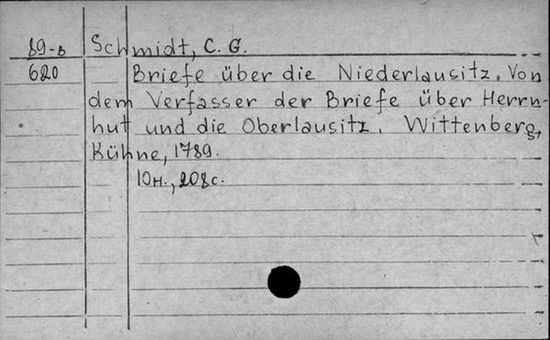 89-в Schmidt, C. G.
620 Briefe über die Niederlausitz. Von
dem Verfasser der Briefe über Herrn-
hut und die Oberlausitz. Wittenberg,
Kühne, 1789.
10н., 208с.